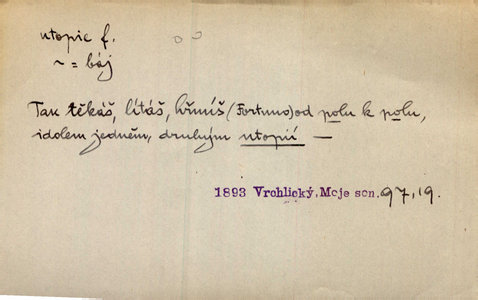 utopie f.
~ = báj
Tak těkáš, lítáš, hřmíš (Fortuno) od polu k polu,
idolem jedněm, druhým utopií —
1893 Vrchlický, Moje son. 97, 19.